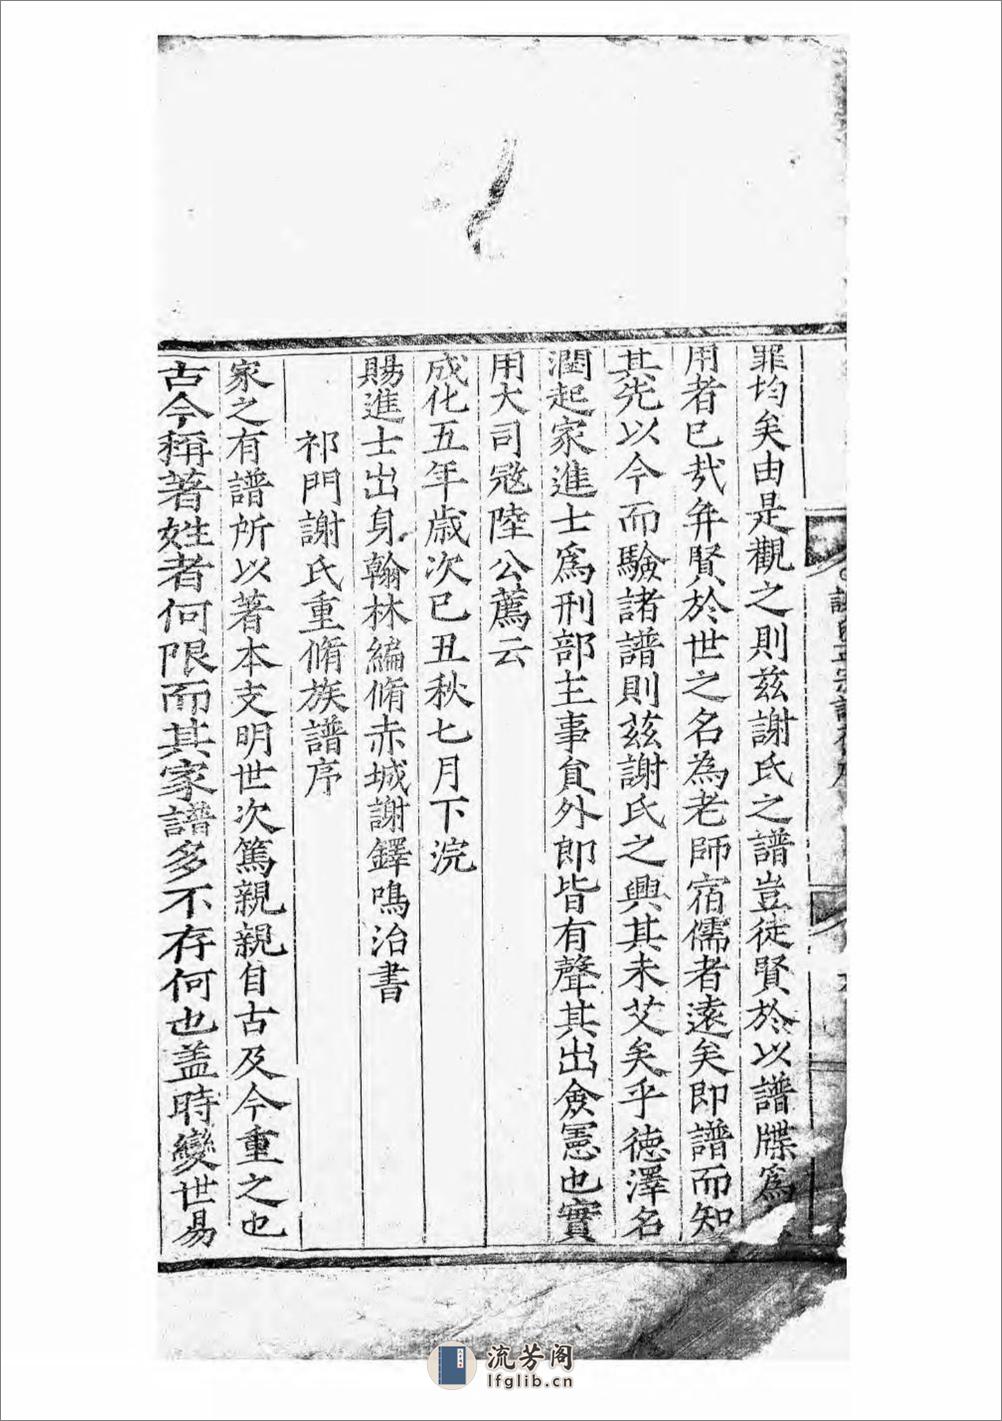 罪均矣由是觀之則兹謝氏之譜豈徒賢於以譜牒爲
用者已㢤弁賢於世之名為老師宿儒者遠矣即譜而知
其先以今而驗諸譜則兹謝氏之興其未艾矣乎德澤名
潤起家進士爲刑部主事貟外郎皆有聲其出僉憲也實
用大司宼陸公薦云
成化五年歲次已丑秋七月下浣
賜進士出身翰林編脩赤城謝鐸鳴治書
祁門謝氏重脩族譜序
家之有譜所以著本支明世次篤親親自古及今重之也
古今稱著姓者何限而其家譜多不存何也盖時變世易
流芳阁
lfglib.cn